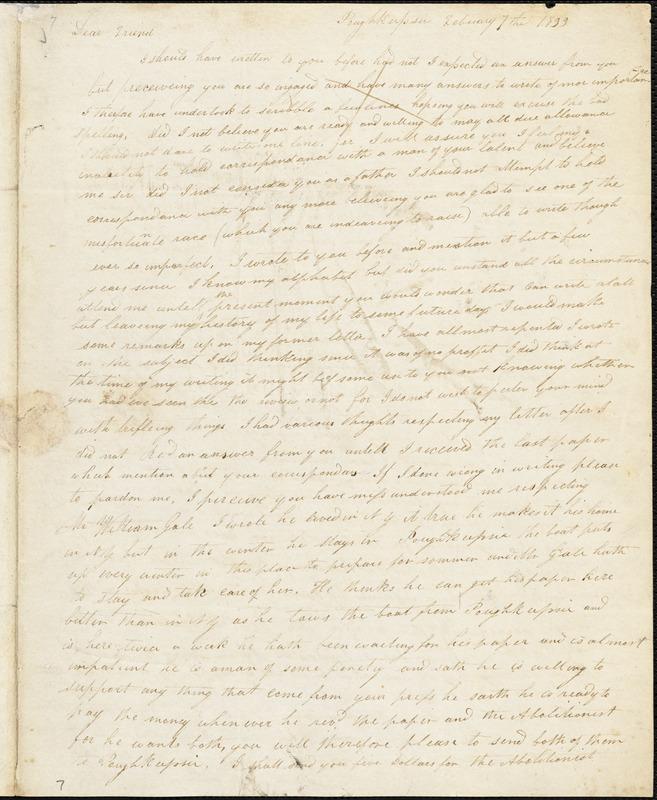 7
Poughkeepsie February 7th 1833
Dear Friend
I should have written to you before had not I expected an answer from you
but perceiveing you are so ingaged and have many answers to write of mor importance
I therfoe have undertook to scribble a few lines hoping you will excuse the bad
spelling, did I not believe you are ready and willing to may all due allowance
I should not dare to write one line, for I will assure you I feel
to hold correspondance with a man of your talent and believe
me sir did I not consider you as a father I should not attempt to hold
correspondance with you any more believeing you are glad to see one of the
misfortinate race (which you are indeavering to raise) able to write though
ever so imperfect. I wrote to you before and mention it but a few
years since I know my alphabet but did you unstand all the circumstances
attend me untell the present moment you would wonder that I can write atall
but leaveing my history of my life to some future day I would make
some remarks upon my former letter I have allmost repented I wrote
on the subject I did thinking since it was of no proffet I did think at
the time of my writing it might be of some use to you not knowing whether
you had ever seen the the review or not for I do not wish to your mind
with trifleing things I had various thoughts respecting my letter after I
did not Red an answer from you untell I received the last paper
which mention abut your correspondance If I done wrong in writing please
to pardon me. I perceive you have miss understood me respecting
Mr William Gale I wrote he lived in N Y it true he makes it his home
in N Y but in the winter he stays in Poughkeepsie the boat puts
up every winter in this place to prepare for sommer and Mr Gale hath
to stay and take care of her. He thinks he can get his paper here
better than in N Y as he tows the boat from Poughkeepsie and
is here twice a week he hath been waiting for his paper and is almost
impatient he is a man of some and sath he is welling to
support any thing that come from your press he saith he is ready to
pay the money when ever he recd the paper and the Abolitionist
for he wants both, you will therefore please to send both of them
to Poughkeepsie. I shall send you five dollars for the Abolitionist
7